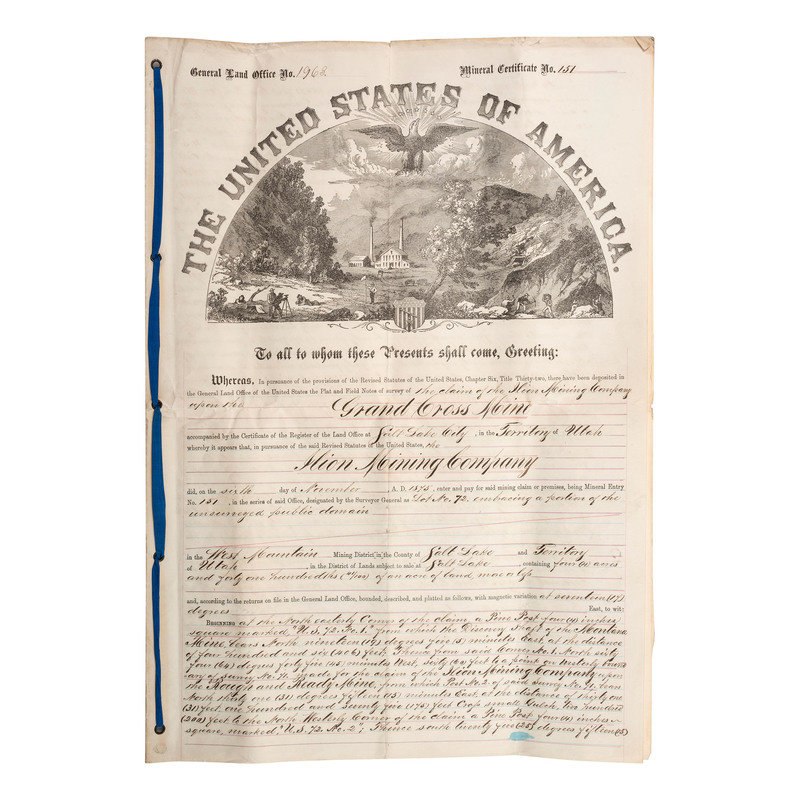 General Land Office No. 1968.
Mineral Certificate No. 151
THE UNITED STATES OF AMERICA.
To all to whom these Presents shall come, Greeting:
Whereas, In pursuance of the provisions of the Revised Statutes of the United States, Chapter Six, Title Thirty-two, there have been deposited in
the General Land Office of the United States the Plat and Field Notes of survey of the claim of the Ilion Mining Company
upon the Grand Cross Mine
accompanied by the Certificate of the Register of the Land Office at Salt Lake City, in the Territory of Utah
whereby it appears that, in pursuance of the said Revised Statutes of the United States, the
Ilion Mining Company
did, on the sixth day of November, A. D. 1875, enter and pay for said mining claim or premises, being Mineral Entry
No. 151, in the series of said Office, designated by the Surveyor General as Lot No. 72. embracing a portion of the
unsurveyed public domain
in the West Mountain Mining District, in the County of Salt Lake and Territory
of Utah, in the District of Lands subject to sale at Salt Lake, containing four (4) acres
and forty one hundredths of an acre of land more or less
and, according to the returns on file in the General Land Office, bounded, described, and platted as follows, with magnetic variation at seventeen (17)
degrees East, to wit:
Beginning at the North easterly Corner of the claim a Pine Post four (4) inches
square marked, "U.S. 72. No. 1." from which the Discovery Shaft of the Montana
Mine bears North nineteen (19) degrees five (5) minutes East, at the distance
of four hundred and six (406) feet. Thence from said Corner No. 1. North sixty
four (64) degrees forty five (45) minutes West, sixty (60) feet to a point on Westerly bound-
ary of survey No. 74 made for the claim of the Ilion Mining Company upon
the Rough and Ready Mine, from which Post No. 2 of said survey No. 74 bears
North thirty one (31) degrees fifteen (15) minutes East, at the distance of thirty one
(31) feet, one hundred and seventy five (175) feet Cross small Gulch, two hundred
(200) feet to the North Westerly Corner of the claim a Pine Post four (4) inches
square, marked, "U.S. 72. No. 2", Thence south twenty five (25) degrees fifteen (15)